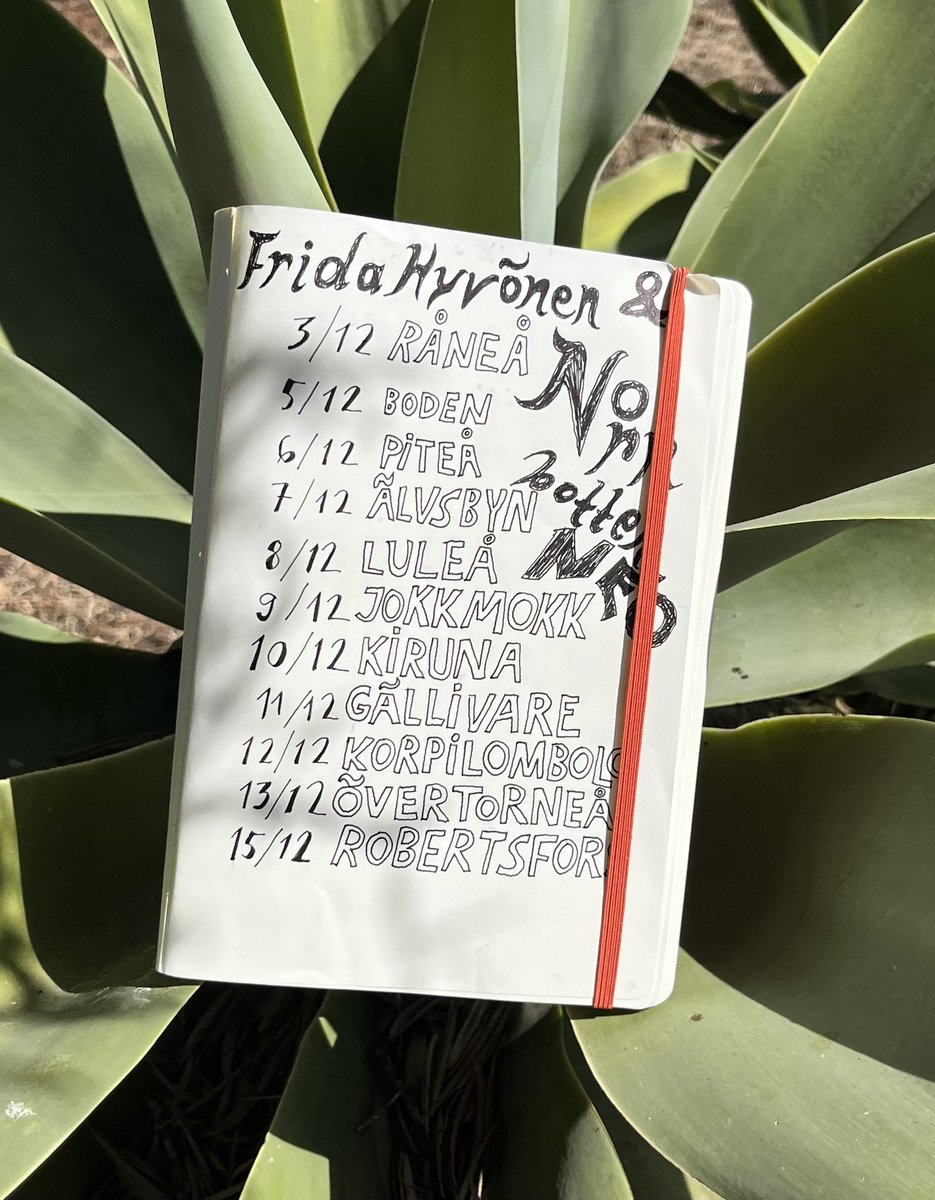 Frida Hyvönen &
Norr
botten
NEO
3/12 RÅNEÅ
5/12 BODEN
6/12 PiTEÅ
7/12 ÄLVSBYN
8/12 LULEÅ
9/12 JOKKMOKK
10/12 KiRUNA
11/12 GÄLLiVARE
12/12 KORPiLOMBOLO
13/12 ÖVERTORNEÅ
15/12 ROBERTSFORS